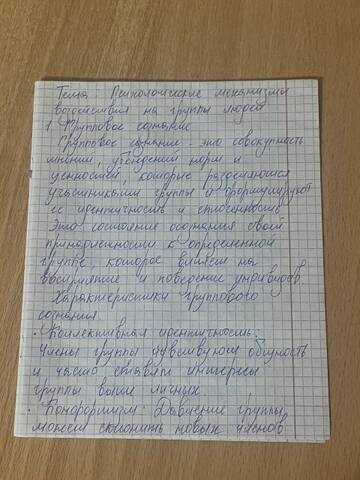 Тема Психологические механизмы
воздействия на группы людей
1. Групповое сознание
Групповое сознание - это совокупность
мнений, убеждений норм и
ценностей, которые разделяются
участниками группы и формируют
ее идентичность и сплоченность
Это состояние осознания своей
принадлежности к определенной
группе, которое влияет на
восприятие и поведение индивидов.
Характеристики группового
сознания.
· Коллективная идентичность:
Члены группы чувствуют общность
и часто ставят интересы
группы выше личных.
· Конформизм: Давление группы
может склонить новых членов